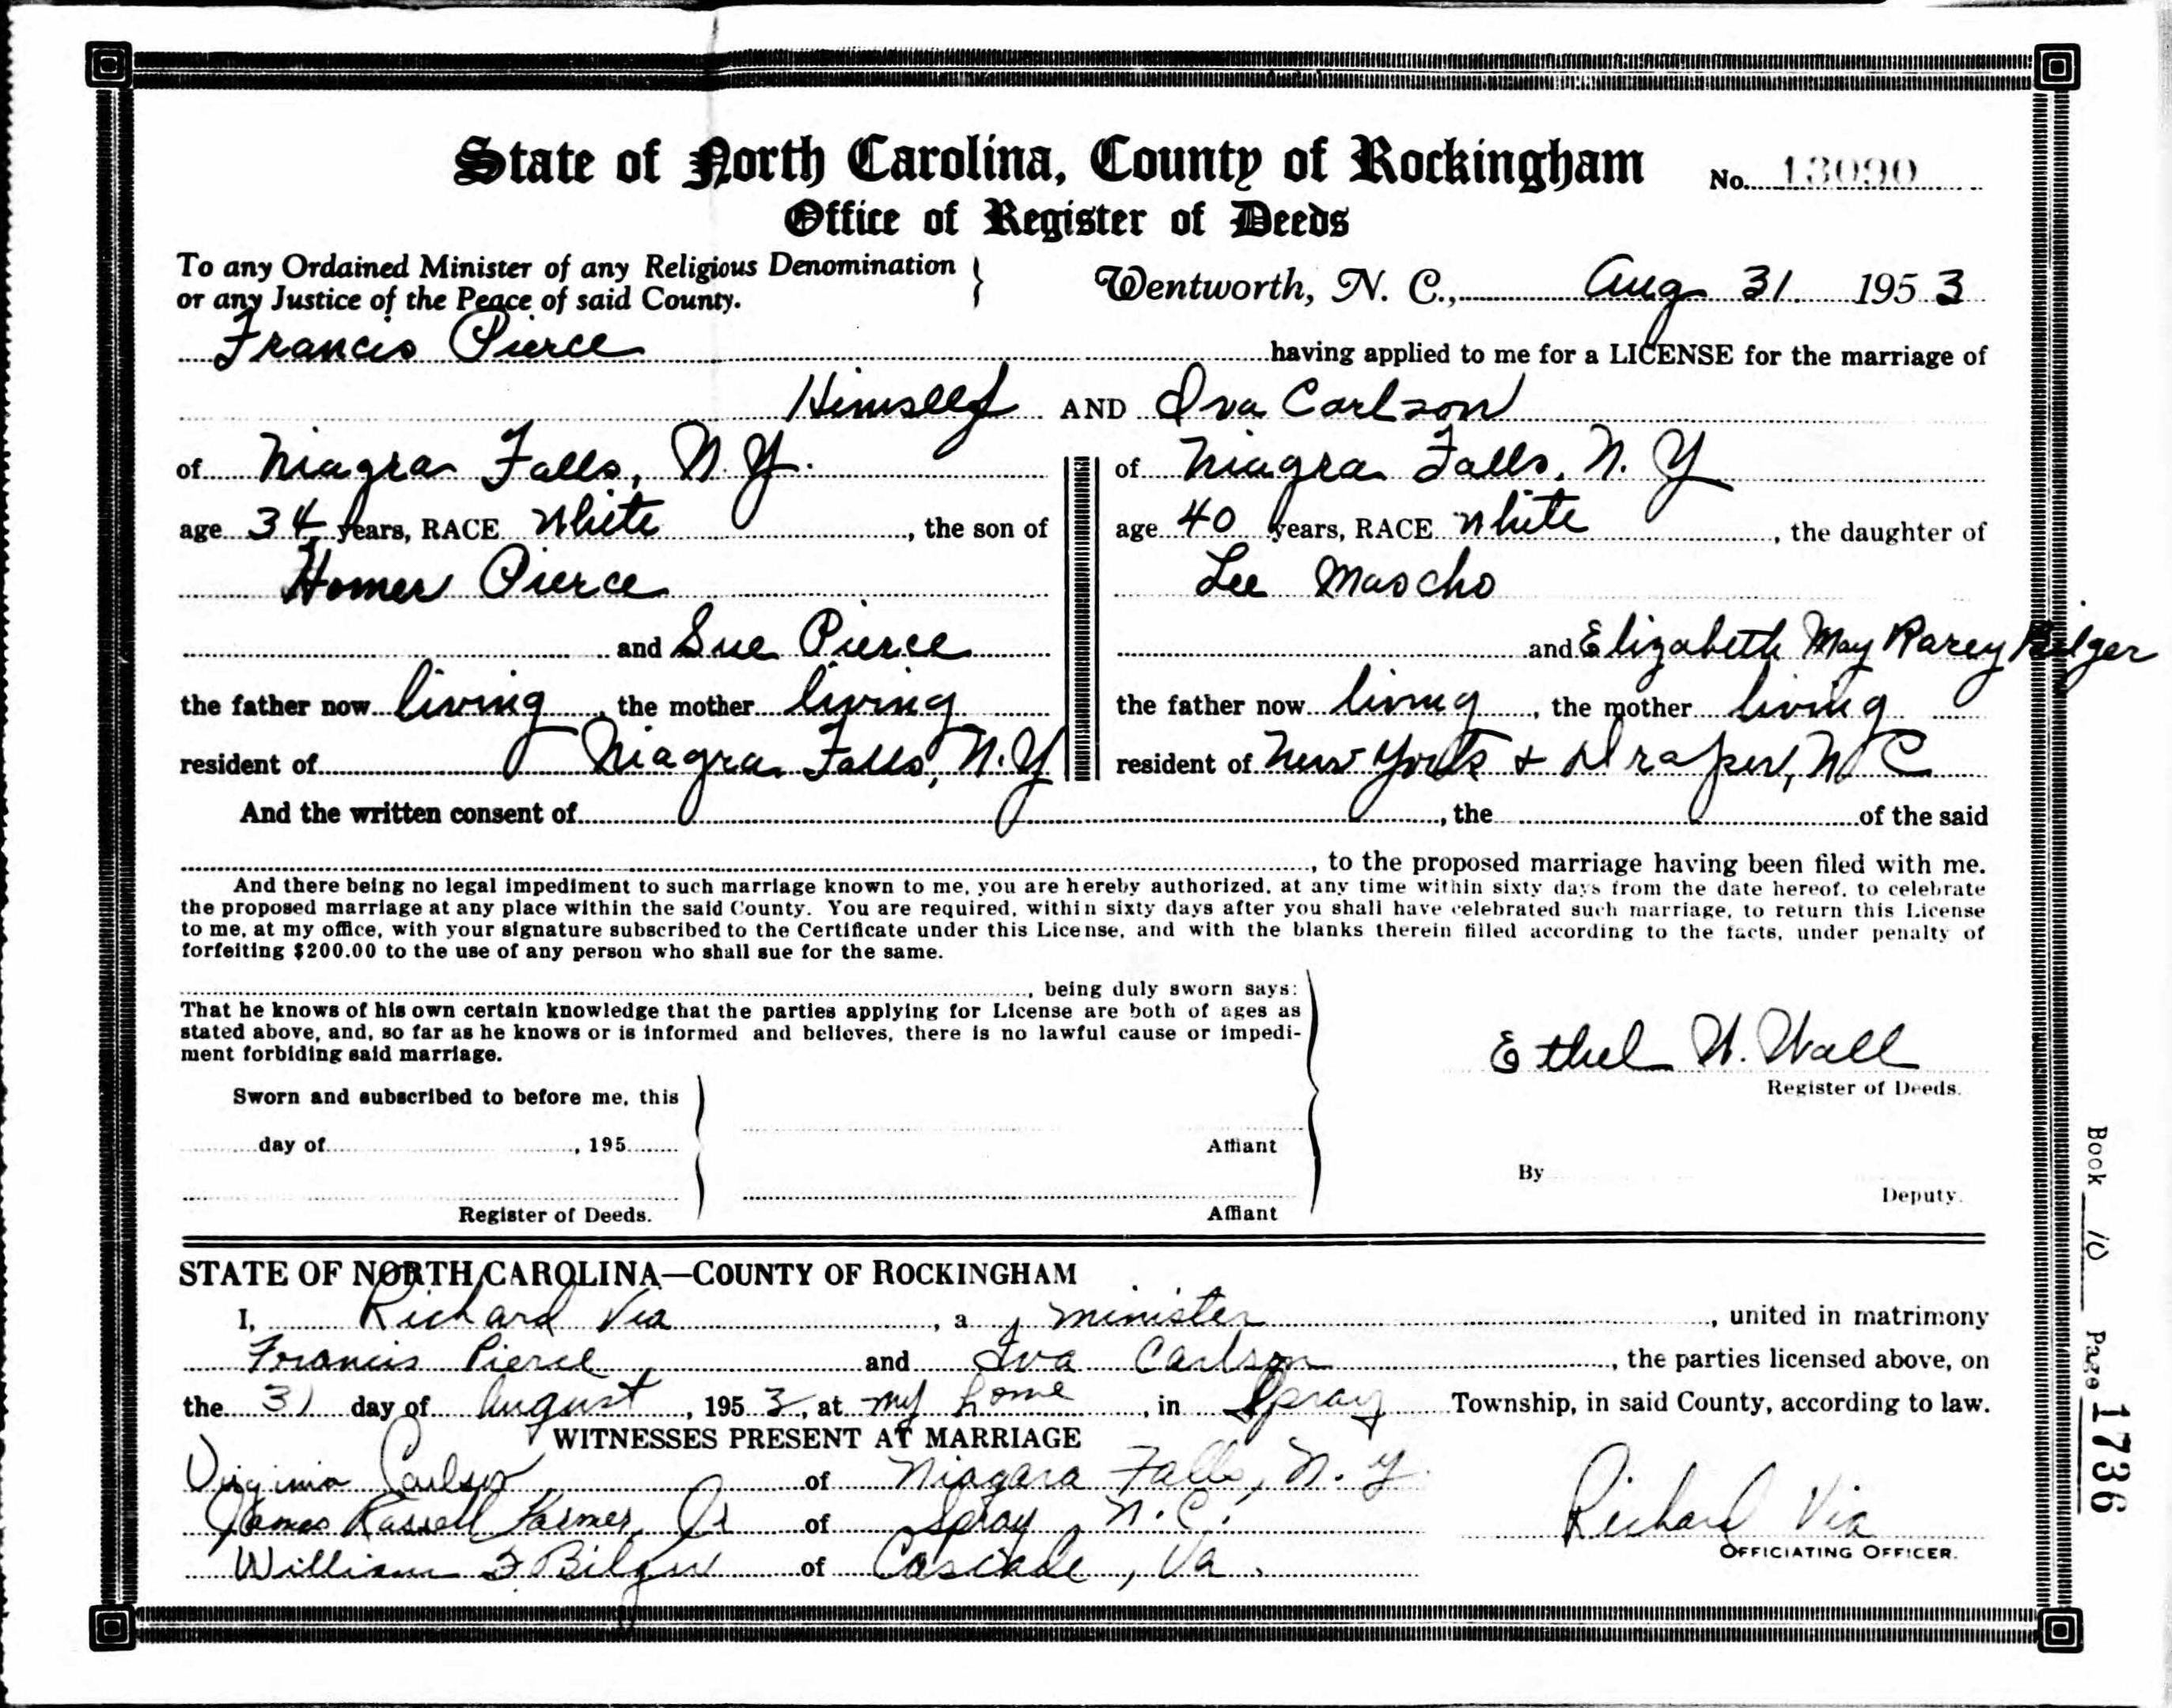 State of North Carolina, County of Rockingham No. 13090
Office of Register of Deeds
To any Ordained Minister of any Religious Denomination
or any Justice of the Peace of said County.
Wentworth, N. C., Aug 31 1953
Francis Pierce having applied to me for a LICENSE for the marriage of
Himself AND Iva Carlson
of Niagra Falls, N.Y.
age 34 years, RACE White, the son of
Homer Pierce
and Sue Pierce
the father now living, the mother living
resident of Niagra Falls, N.Y
of Niagra Falls, N. Y
age 40 years, RACE White, the daughter of
Lee Mascho
and Elizabeth May Rarey Bilger
the father now living, the mother living
resident of New York + Draper, N C
And the written consent of, the of the said
, to the proposed marriage having been filed with me.
And there being no legal impediment to such marriage known to me, you are hereby authorized, at any time within sixty days from the date hereof, to celebrate
the proposed marriage at any place within the said County. You are required, within sixty days after you shall have celebrated such marriage, to return this License
to me, at my office, with your signature subscribed to the Certificate under this License, and with the blanks therein filled according to the facts, under penalty of
forfeiting $200.00 to the use of any person who shall sue for the same.
, being duly sworn says:
That he knows of his own certain knowledge that the parties applying for License are both of ages as
stated above, and, so far as he knows or is informed and believes, there is no lawful cause or impedi-
ment forbiding said marriage.
Sworn and subscribed to before me, this
day of, 195
Register of Deeds.
Affiant
Affiant
Ethel W. Wall
Register of Deeds.
By
Deputy.
STATE OF NORTH CAROLINA—COUNTY OF ROCKINGHAM
I, Richard Via, a minister, united in matrimony
Francis Pierce and Iva Carlson, the parties licensed above, on
the 31 day of August, 1953, at my home, in Spray Township, in said County, according to law.
WITNESSES PRESENT AT MARRIAGE
Virginia Carlson of Niagara Falls, N. Y.
James Russell Farmer, Jr of Spray N.C.
William F. Bilger of Cascade, Va.
Richard Via
OFFICIATING OFFICER.
Book 10 Page 1736